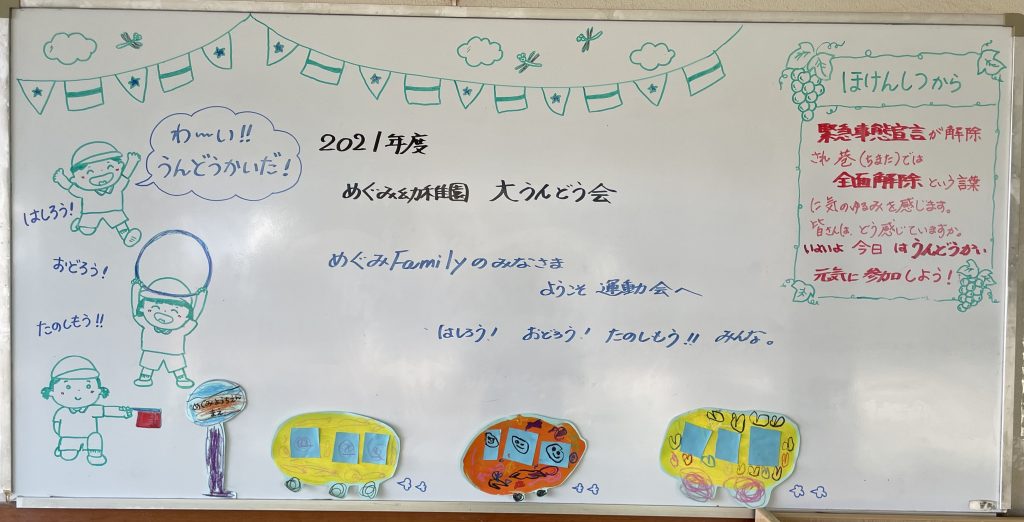 わーい!!
うんどうかいだ!
はしろう!
おどろう!
たのしもう!!
2021年度
めぐみ幼稚園 大うんどう会
めぐみFamilyのみなさま
ようこそ 運動会へ
はしろう! おどろう! たのしもう!! みんな。
ほけんしつから
緊急事態宣言が解除
され 巷(ちまた)では
全面解除 という言葉
に気のゆるみを感じます。
皆さんは、どう感じていますか。
いよいよ 今日 は うんどうかい
元気に 参加しよう!
めぐみようちえん